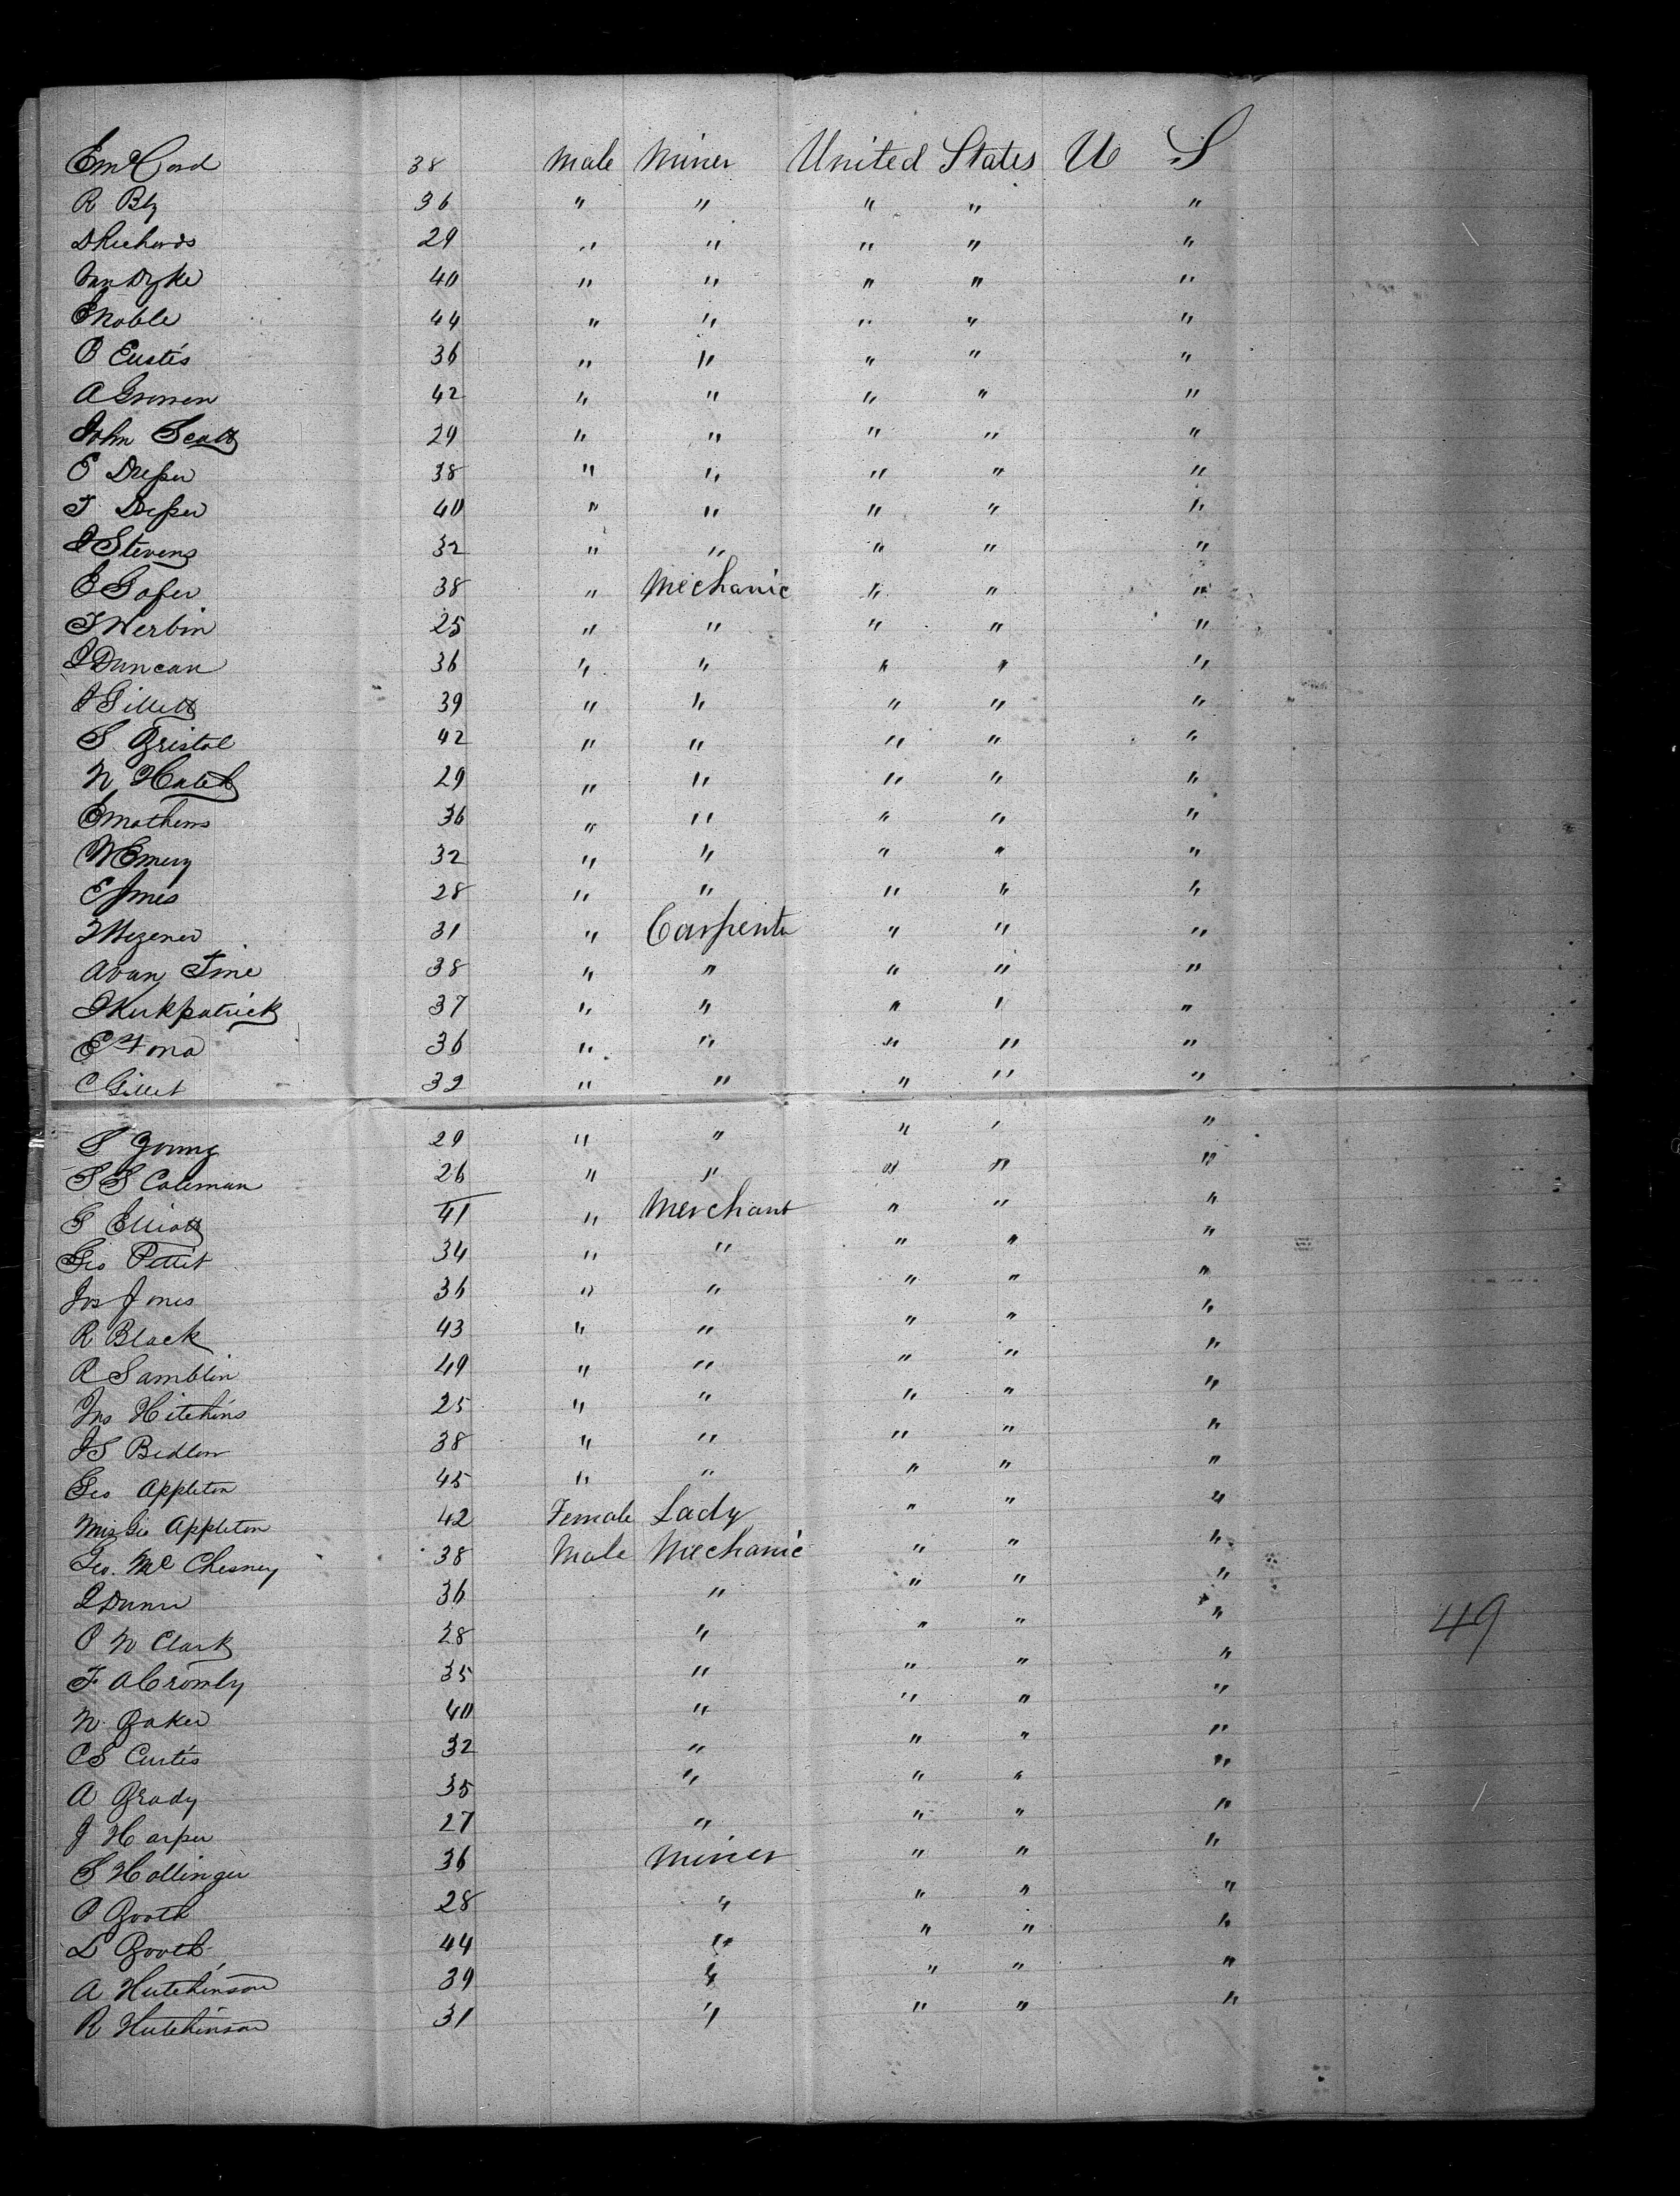 E McCord 38 Male Miner United States U S
R Bly 36 " " " " "
D Richards 29 " " " " "
Van Dyke 40 " " " " "
E Noble 44 " " " " "
P Eustis 36 " " " " "
A 42 " " " " "
John Scott 29 " " " " "
E 38 " " " " "
T 40 " " " " "
J Stevens 32 " " " " "
E 38 " Mechanic " " "
T Werbin 25 " " " " "
J Duncan 36 " " " " "
J Gillett 39 " " " " "
S Bristol 42 " " " " "
N Hatch 29 " " " " "
E Mathews 36 " " " " "
W Emery 32 " " " " "
E Jones 28 " " " " "
31 " Carpenter " " "
A Van Tine 38 " " " " "
J Kirkpatrick 37 " " " " "
E Ford 36 " " " " "
C Gillet 32 " " " " "
S Young 29 " " " " "
S S Coleman 26 " " " " "
G Elliott 41 " Merchant " " "
Geo Pettit 34 " " " " "
Jos Jones 36 " " " " "
R Black 43 " " " " "
R Samblin 49 " " " " "
Jno Hitchins 25 " " " " "
J S Bedlow 38 " " " " "
Geo Appleton 45 " " " " "
Mrs Geo Appleton 42 Female Lady " " "
Geo. Mc Chesney 38 Male Mechanic " " "
J Dunn 36 " " " "
P W Clark 28 " " " "
F A Cromly 35 " " " "
N Baker 40 " " " "
C S Curtis 32 " " " "
A Brady 35 " " " "
J Harper 27 " " " "
S Hollinger 36 Miner " " "
P Booth 28 " " " "
L Booth 44 " " " "
A Hutchinson 39 " " " "
R Hutchinson 31 " " " "
49